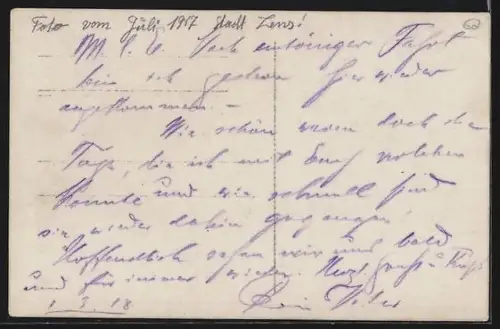 Foto vom Juli 1917 Stadt Lens!
M. l. E. Nach eintöniger Fahrt
bin ich gestern hier wieder
angekommen. –
Wie schön waren doch die
Tage, die ich mit Euch verleben
konnte und wie schnell sind
sie wieder dahin gegangen!
Hoffentlich sehen wir uns bald
und für immer wieder. Herzl. Gruß u Kuß
1.3.18 Dein Vater